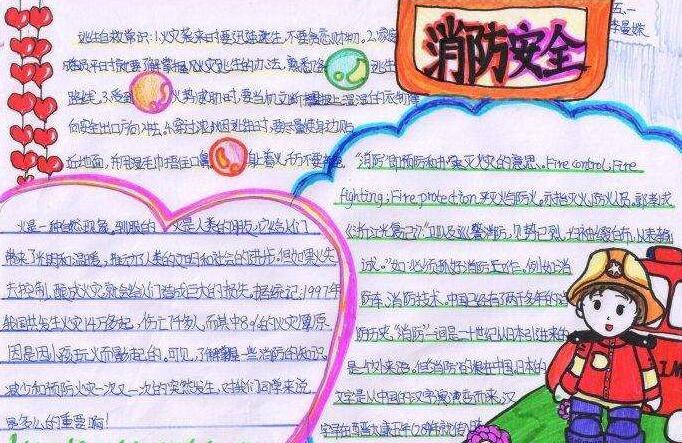 消防安全
五、一
李曼姝
逃生自救常识:1.火灾袭来时要迅速逃生,不要贪恋财物。2.
平时就要了解掌握火灾逃生的办法,熟悉
逃生
路线。3.受到
火势威胁时,要当机立断披上浸湿的衣物
向安全出口方向冲出。4.穿过浓烟逃生时,要尽量使身边贴
近地面,并用湿毛巾捂住口鼻
身上着火,千万不要奔跑
火是一种自然现象,驯服的
火是人类的朋友,它给人们
带来了光明和温暖,推动了人类的文明和社会的进步。但如果火失
去控制,酿成火灾就会给人们造成巨大的损失。据统记:1997年
我国共发生火灾14万多起,伤亡
千多人,而其中8%的火灾原
因是因小孩玩火而引起的。可见,了解掌握一些消防的知识,
减少和预防火灾一次又一次的突然发生,对我们同学来说
是多么的重要啊!
“消防”即预防和扑灭火灾的意思。Fire control; Fire
fighting; Fire protection.
“如:必须抓好消防工作,例如:消
防车,消防技术。中国已经有了两千多年的消
防历史。“消防”一词是二十世纪从日本引进来的
是个外来语,但消防的根在中国,日本的
文字是从中国的汉字演变而来,汉